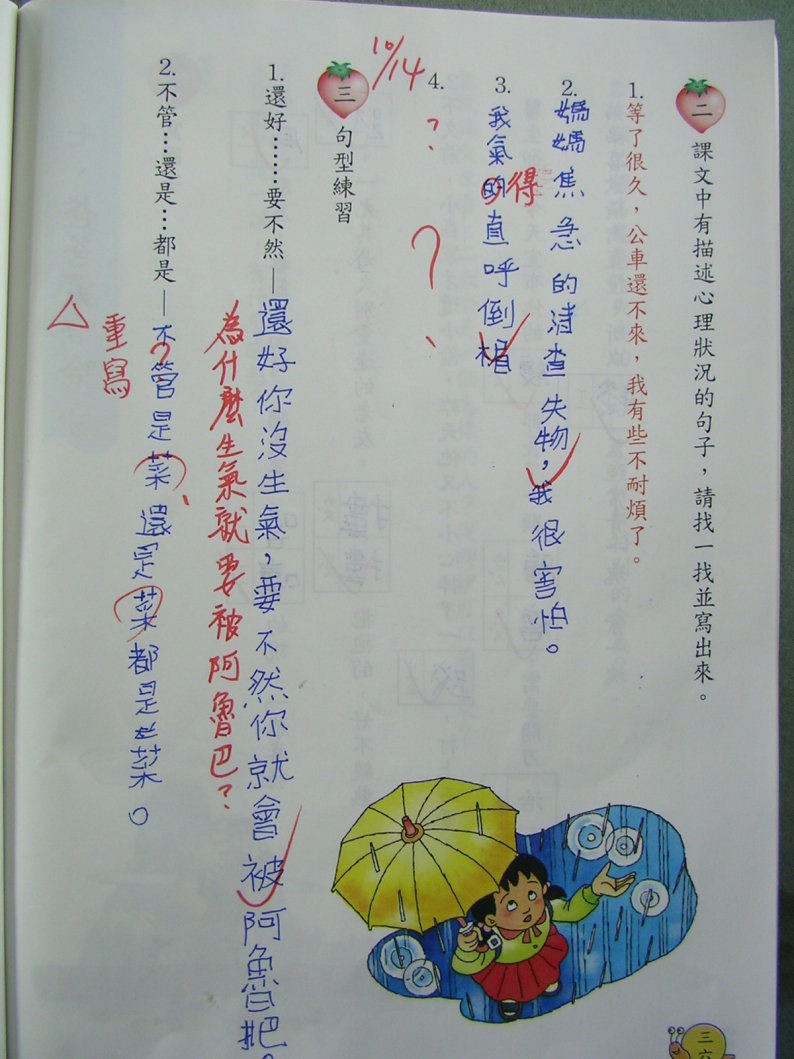 二 課文中有描述心理狀況的句子，請找一找並寫出來。
1. 等了很久，公車還不來，我有些不耐煩了。
2. 媽媽焦急的清查失物，我很害怕。
3. 我氣的直呼倒楣
得
4. ？
？
10/14
三 句型練習
1. 還好……要不然—還好你沒生氣，要不然你就會被阿魯把。
為什麼生氣就要被阿魯巴？
2. 不管…還是…都是—不管是菜還是菜都是菜。
？
重寫
△
三六